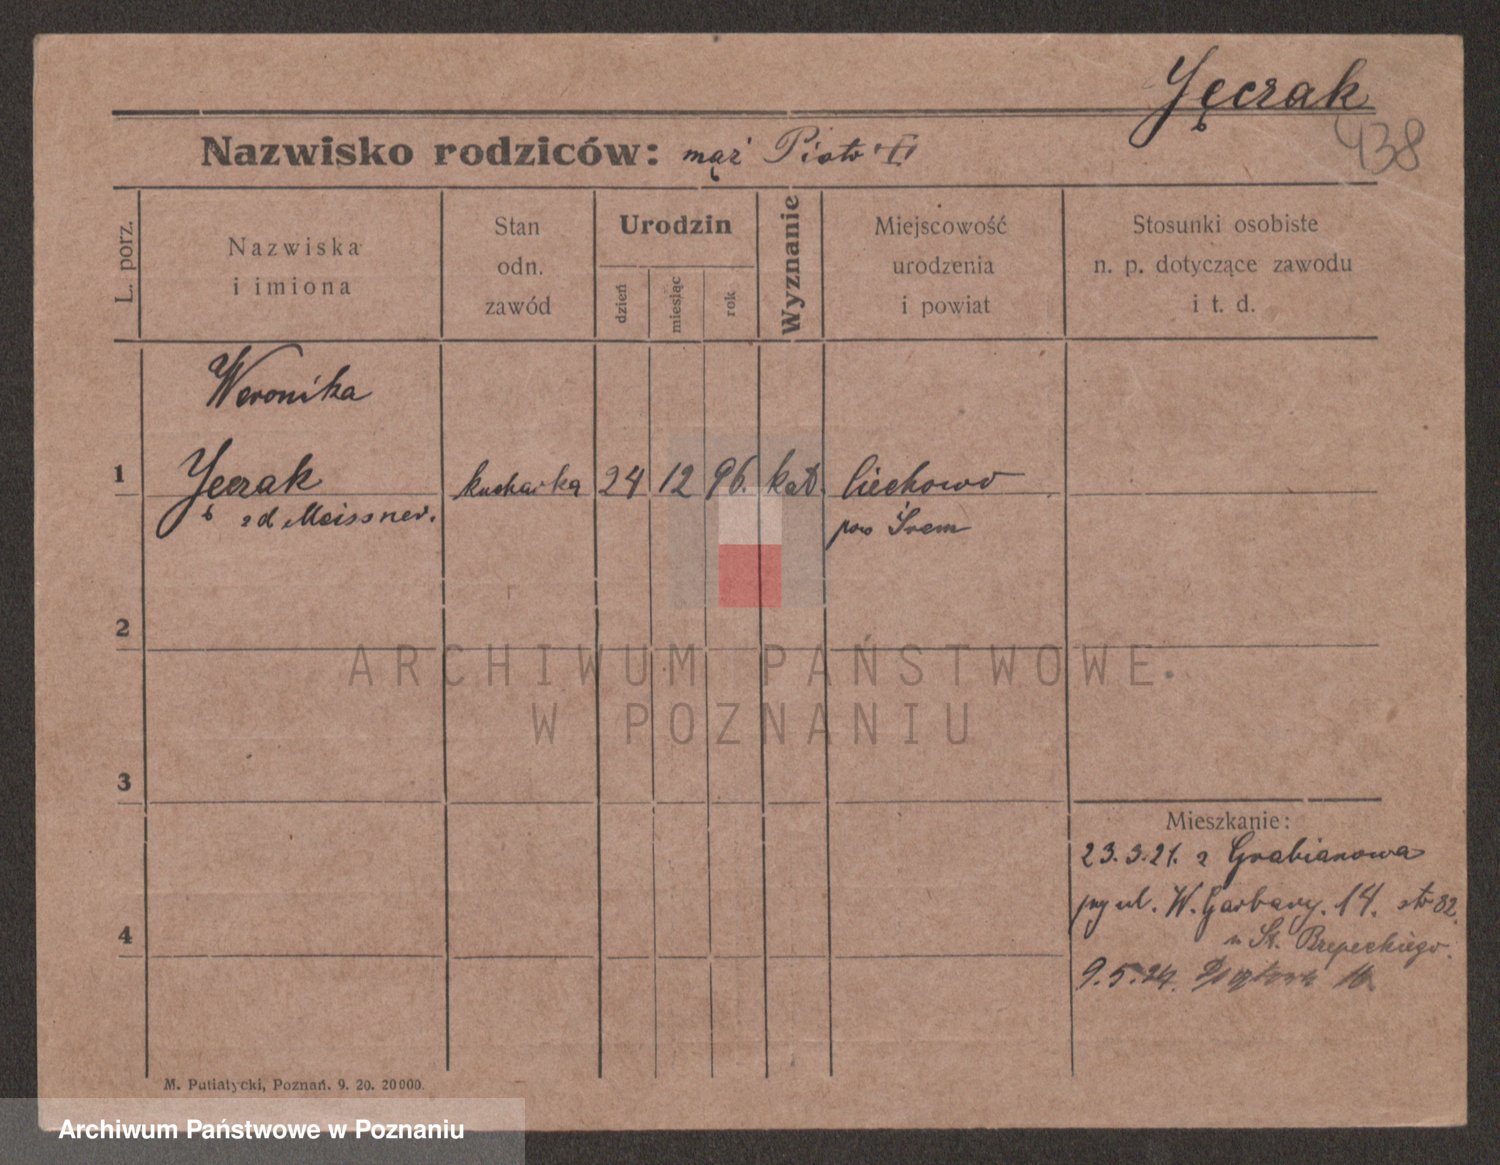 Jęczak
438
Nazwisko rodziców: mąż Piotr
L. porz.
Nazwiska
i imiona
Stan
odn.
zawód
Urodzin
dzień
miesiąc
rok
Wyznanie
Miejscowość
urodzenia
i powiat
Stosunki osobiste
n. p. dotyczące zawodu
i t. d.
Weronika
1 Jęczak kucharka 24 12 96. kat. Ciechowo
zd Meissner. pow Śrem
2
ARCHIWUM PAŃSTWOWE
W POZNANIU
3
Mieszkanie:
23.3.21. z Grabianowa
przy ul. W. Garbary. 14. str 82.
u St. Brzpeckiego.
4
9.5.24. Pocztowa 16
M. Putiatycki, Poznań. 9. 20. 20000.
Archiwum Państwowe w Poznaniu